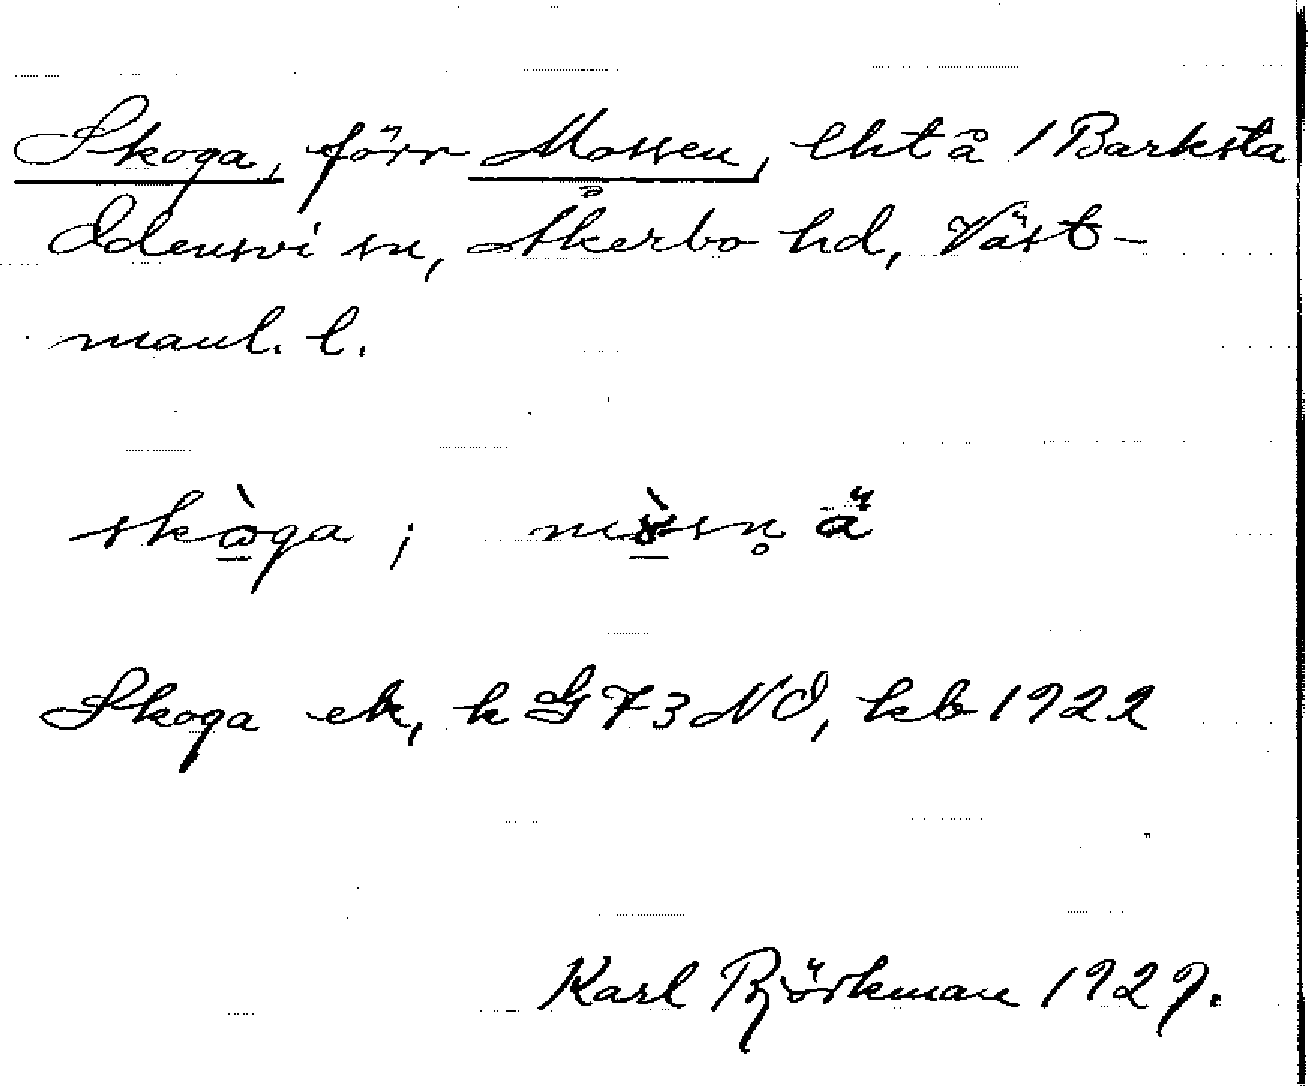 Skoga, förr Mossen, lht å 1 Barksta
Odensvi sn, Åkerbo hd, Väst-
manl. l.
skò̲ga ; mò̲sn̥ ä
Skoga ek, k G 73 NO, kb 1922
Karl Björkman 1929.